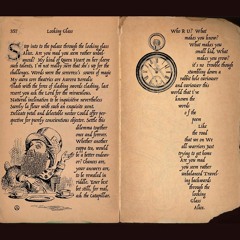 100
Looking Glass
Step into to the palace through the looking glass
Alice. Are you mad you seem rather unbal-
anced? My kind of Queen Heart on her dance
and talents, if we really mire that it's we for the
challenges. Words were the sorcerer's source of magic
My aces were an Avatars and Aaron Berakis
Clash with the fires of slashing swords clashing, last
razor you ask the Lord for the miraculous.
Natural inclination to be inquisitive nevertheless
Javelin to flow with such an exquisite scent.
Delicate petal and delectable water Could offer per-
spective for purely conscientious objector. Settle this
dilemma together
once and forever.
Whether another
coffee tea, would
be a better endeav-
or? Chances are,
your answers are
to be revealed in
riddle. Your best
be still, for real,
ask the Caterpillar.
Who R U? What
makes you know?
What makes
you small kid, What
makes you grow?
it's no trouble though
stumbling down a
rabbit hole curiouser
and curiouser this
world that I've
known the
words
of the
poem
Like
the road
that we on We
all warriors just
trying to get home
Are you mad
you were rather
unbalanced Travel-
ing backwards
through the
looking
Glass
Alice.